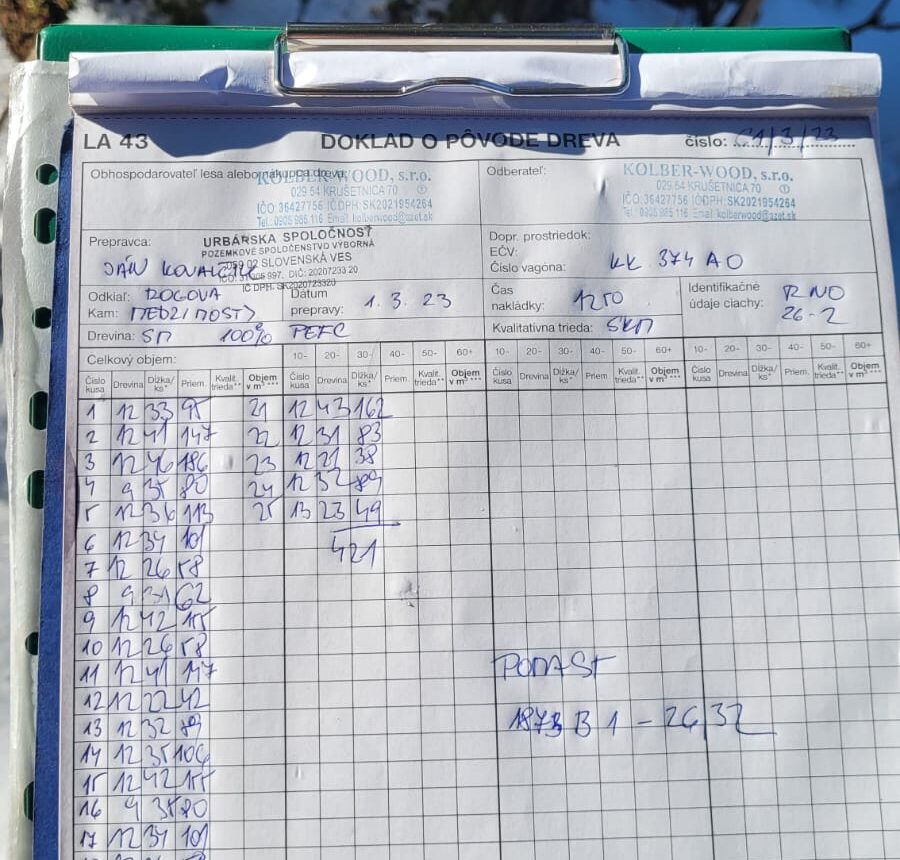 LA 43 DOKLAD O PÔVODE DREVA číslo: C1/3/23
Obhospodarovateľ lesa alebo nákupca dreva:
KOLBER-WOOD, s.r.o.
029 54 KRUŠETNICA 70
IČO: 36427756 IČDPH: SK2021954264
Tel.: 0905 985 116 Email: kolberwood@azet.sk
Odberateľ:
KOLBER-WOOD, s.r.o.
029 54 KRUŠETNICA 70
IČO: 36427756 IČDPH: SK2021954264
Tel.: 0905 985 116 Email: kolberwood@azet.sk
Prepravca:
JÁN KOVALČÍK
URBÁRSKA SPOLOČNOSŤ
POZEMKOVÉ SPOLOČENSTVO VÝBORNÁ
059 02 SLOVENSKÁ VES
Dopr. prostriedok:
EČV:
Číslo vagóna: KK 374 AO
Odkiaľ: ROGOVA
Kam: MEDZI MOSTY
Dátum prepravy: 1.3.23
Čas nakládky: 1250
Identifikačné údaje ciachy: RNO 26-2
Drevina: SM 100% PEFC
Kvalitatívna trieda: SKM
Celkový objem: 10- 20- 30- 40- 50- 60+ 10- 20- 30- 40- 50- 60+ 10- 20- 30- 40- 50- 60+
Číslo kusa Drevina Dĺžka/ks* Priem. Kvalit. trieda** Objem v m³ *** Číslo kusa Drevina Dĺžka/ks* Priem. Kvalit. trieda** Objem v m³ *** Číslo kusa Drevina Dĺžka/ks* Priem. Kvalit. trieda** Objem v m³ *** Číslo kusa Drevina Dĺžka/ks* Priem. Kvalit. trieda** Objem v m³ ***
1 12 33 95 21 12 43 162
2 12 41 147 22 12 31 83
3 12 46 186 23 12 21 38
4 9 35 80 24 12 32 89
5 12 36 113 25 13 23 49
6 12 34 101 421
7 12 26 58
8 9 31 62
9 12 42 155
10 12 26 58
11 12 41 147
12 12 22 42
13 12 32 89
14 12 35 106
15 12 42 155
16 9 35 80
17 12 34 101
1873 B 1 - 26/32